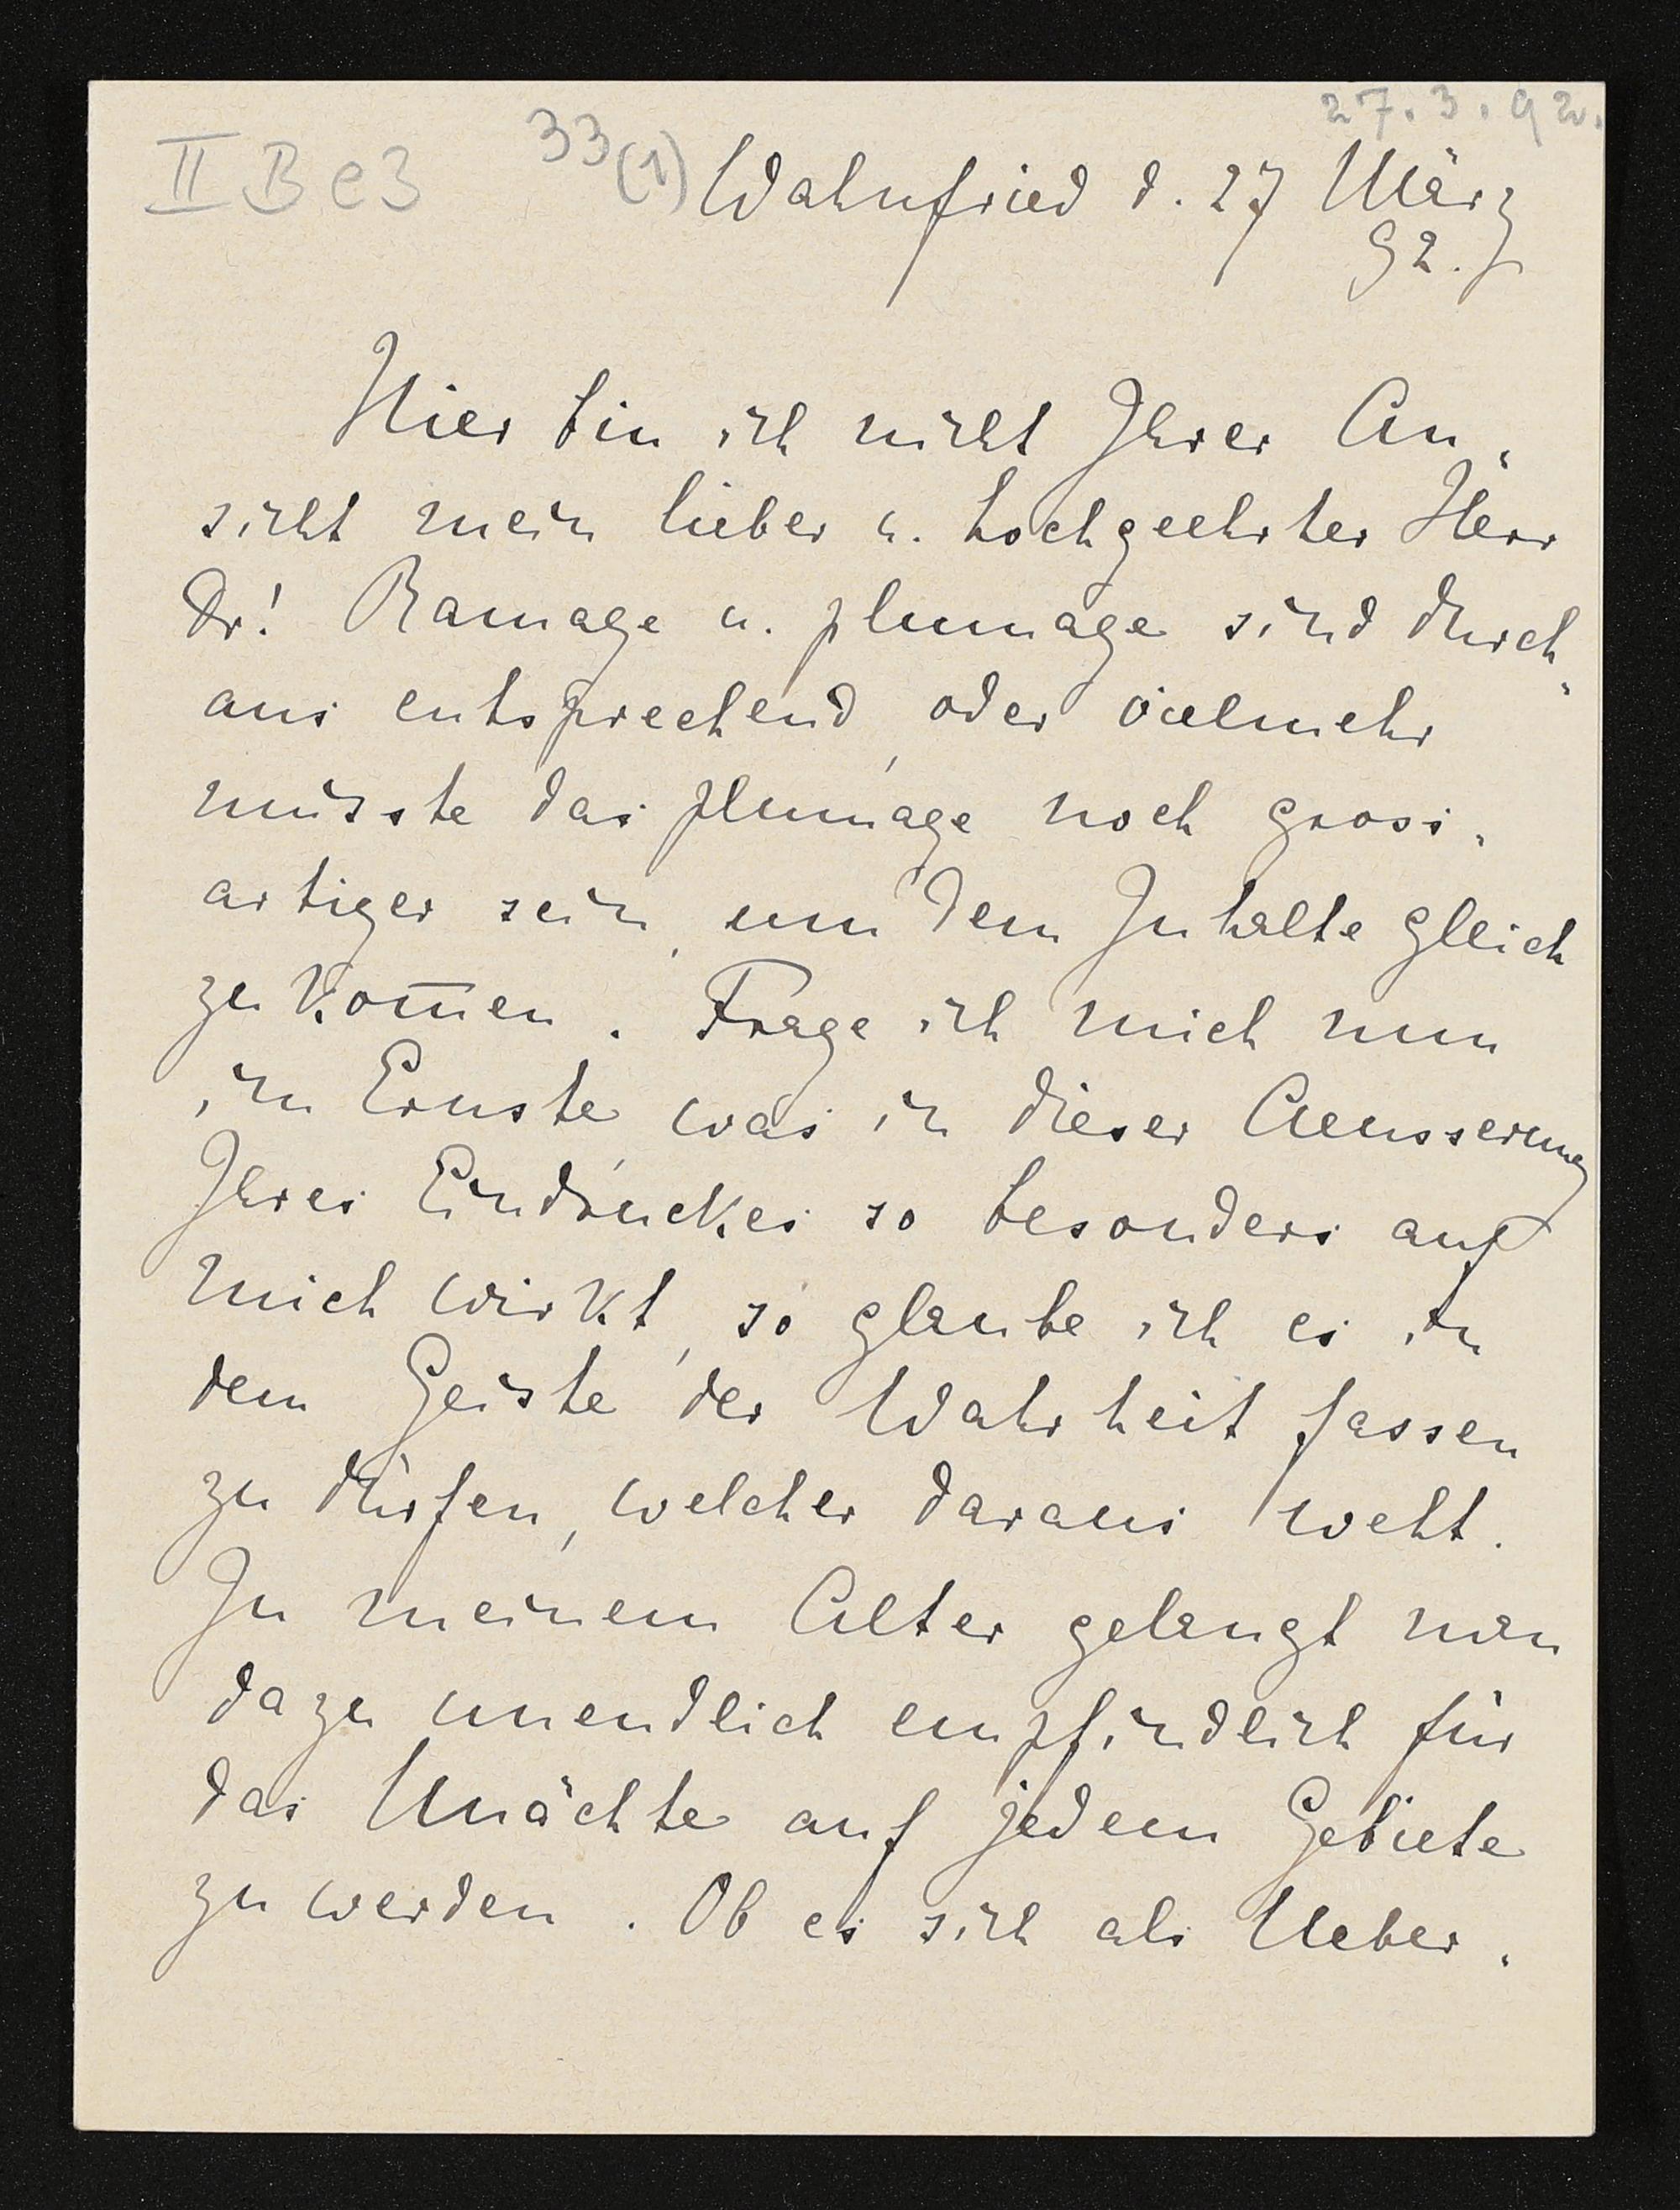 27.3.92.
II B e 3 33(1) Wahnfried d. 27 März
92.
Hier bin ich nicht Ihrer An-
sicht mein lieber u. hochgeehrter Herr
Dr! Ramage u. plumage sind durch-
aus entsprechend, oder vielmehr
müsste das plumage noch gross-
artiger sein, um dem Inhalte gleich
zu kom̅en. Frage ich mich nun
im Ernste, was in dieser Aeusserung
Ihres Eindruckes so besonders auf
mich wirkt, so glaube ich es in
dem Geiste der Wahrheit fassen
zu dürfen, welcher daraus weht.
In meinem Alter gelangt man
dazu unendlich empfindlich für
das Unächte auf jedem Gebiete
zu werden. Ob es sich als Ueber-